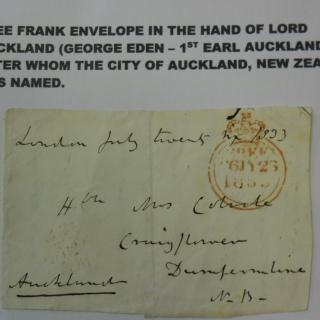 EE FRANK ENVELOPE IN THE HAND OF LORD
CKLAND (GEORGE EDEN – 1ST EARL AUCKLAND
TER WHOM THE CITY OF AUCKLAND, NEW ZEA
S NAMED.
London July twenty six 1833
FREE
26JY26
1833
Hble Mrs Colvile
Craigflower
Dumfermline
Auckland
N.B-